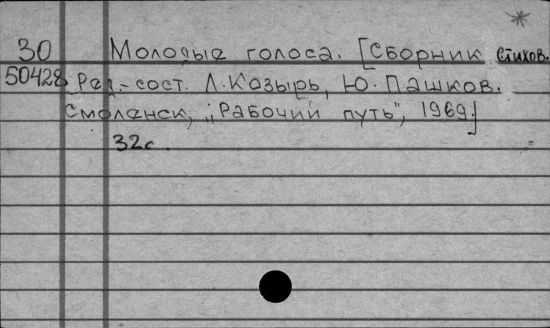 *
30 Молодые голоса. [Сборник стихов.
50428 Ред.-сост. Л.Козырь, Ю.Пашков.
Смоленск, „Рабочий путь", 1969.]
32с.